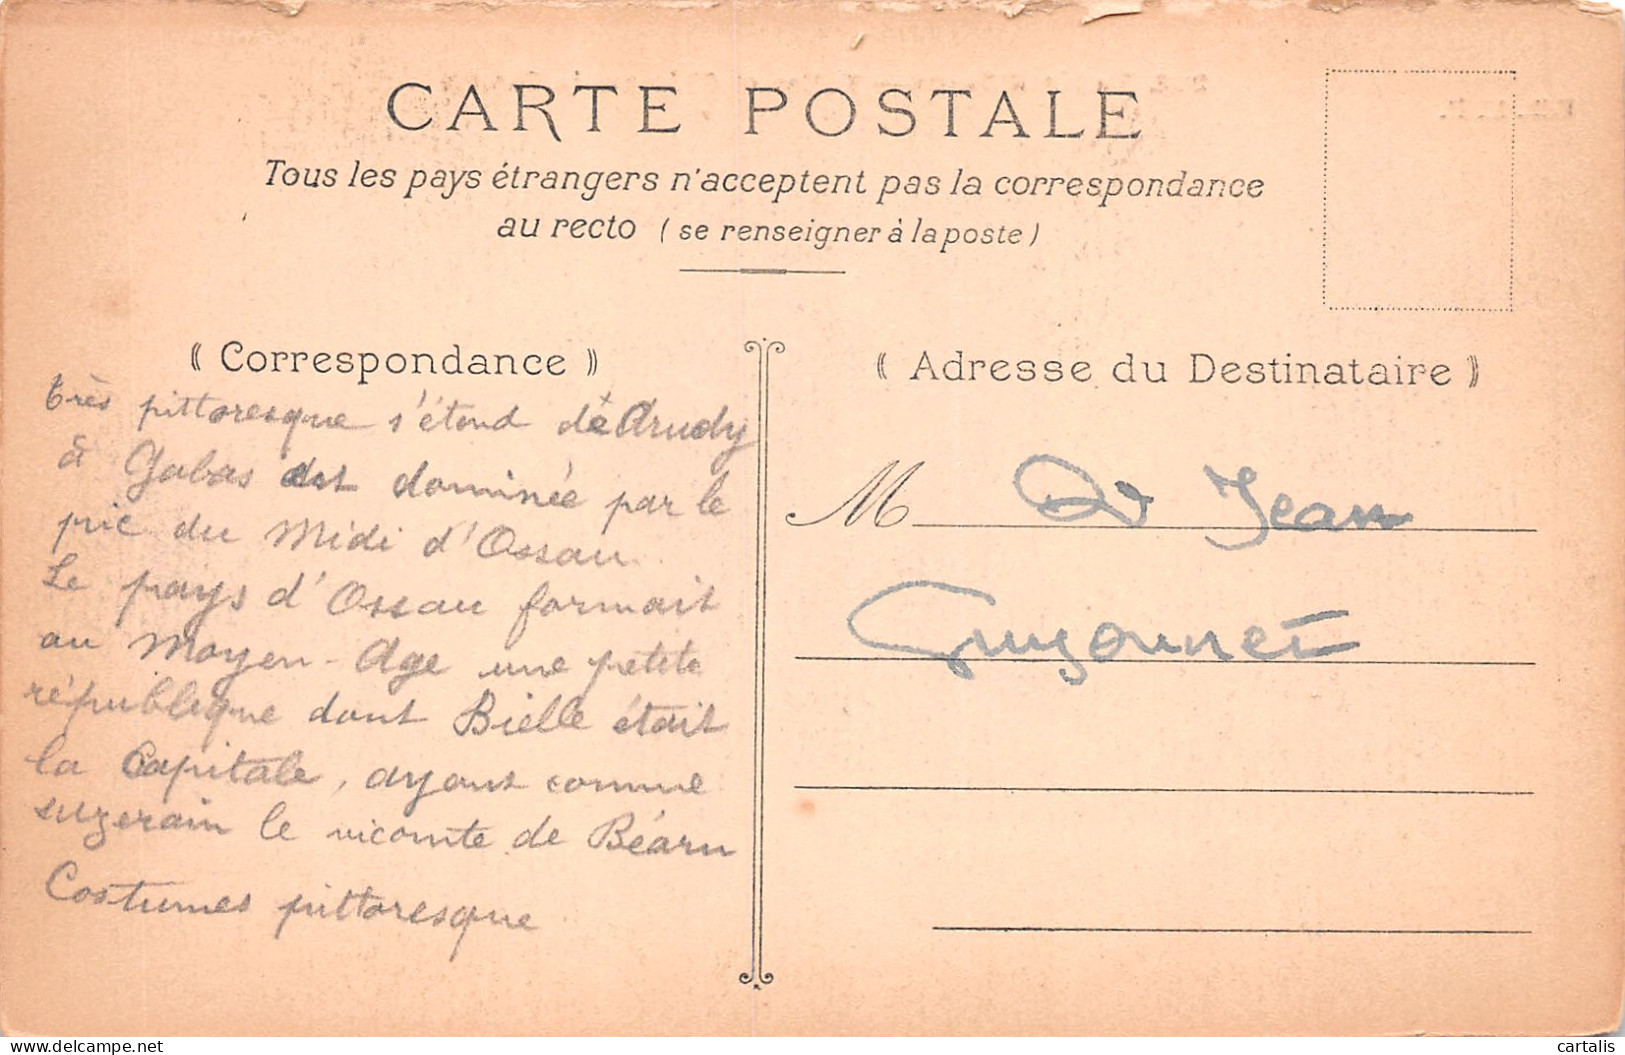 CARTE POSTALE
Tous les pays étrangers n'acceptent pas la correspondance
au recto (se renseigner à la poste)
« Correspondance »
« Adresse du Destinataire »
très pittoresque s'étend de Arudy
à Gabas est dominée par le
pic du Midi d'Ossau.
Le pays d'Ossau formait
au Moyen-Age une petite
république dont Bielle était
la Capitale, ayant comme
suzerain le vicomte de Béarn
Costumes pittoresque
M Dr Jean
Guyonnet
cartalis